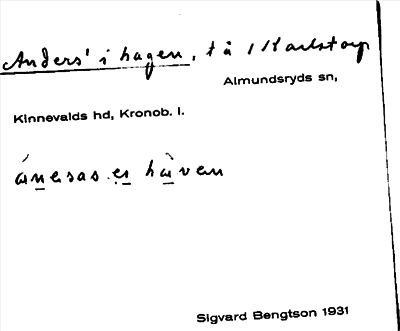 Anders' i hagen, t å 1 Karlstorp
Almundsryds sn,
Kinnevalds hd, Kronob. l.
ánesas es hàven
Sigvard Bengtson 1931